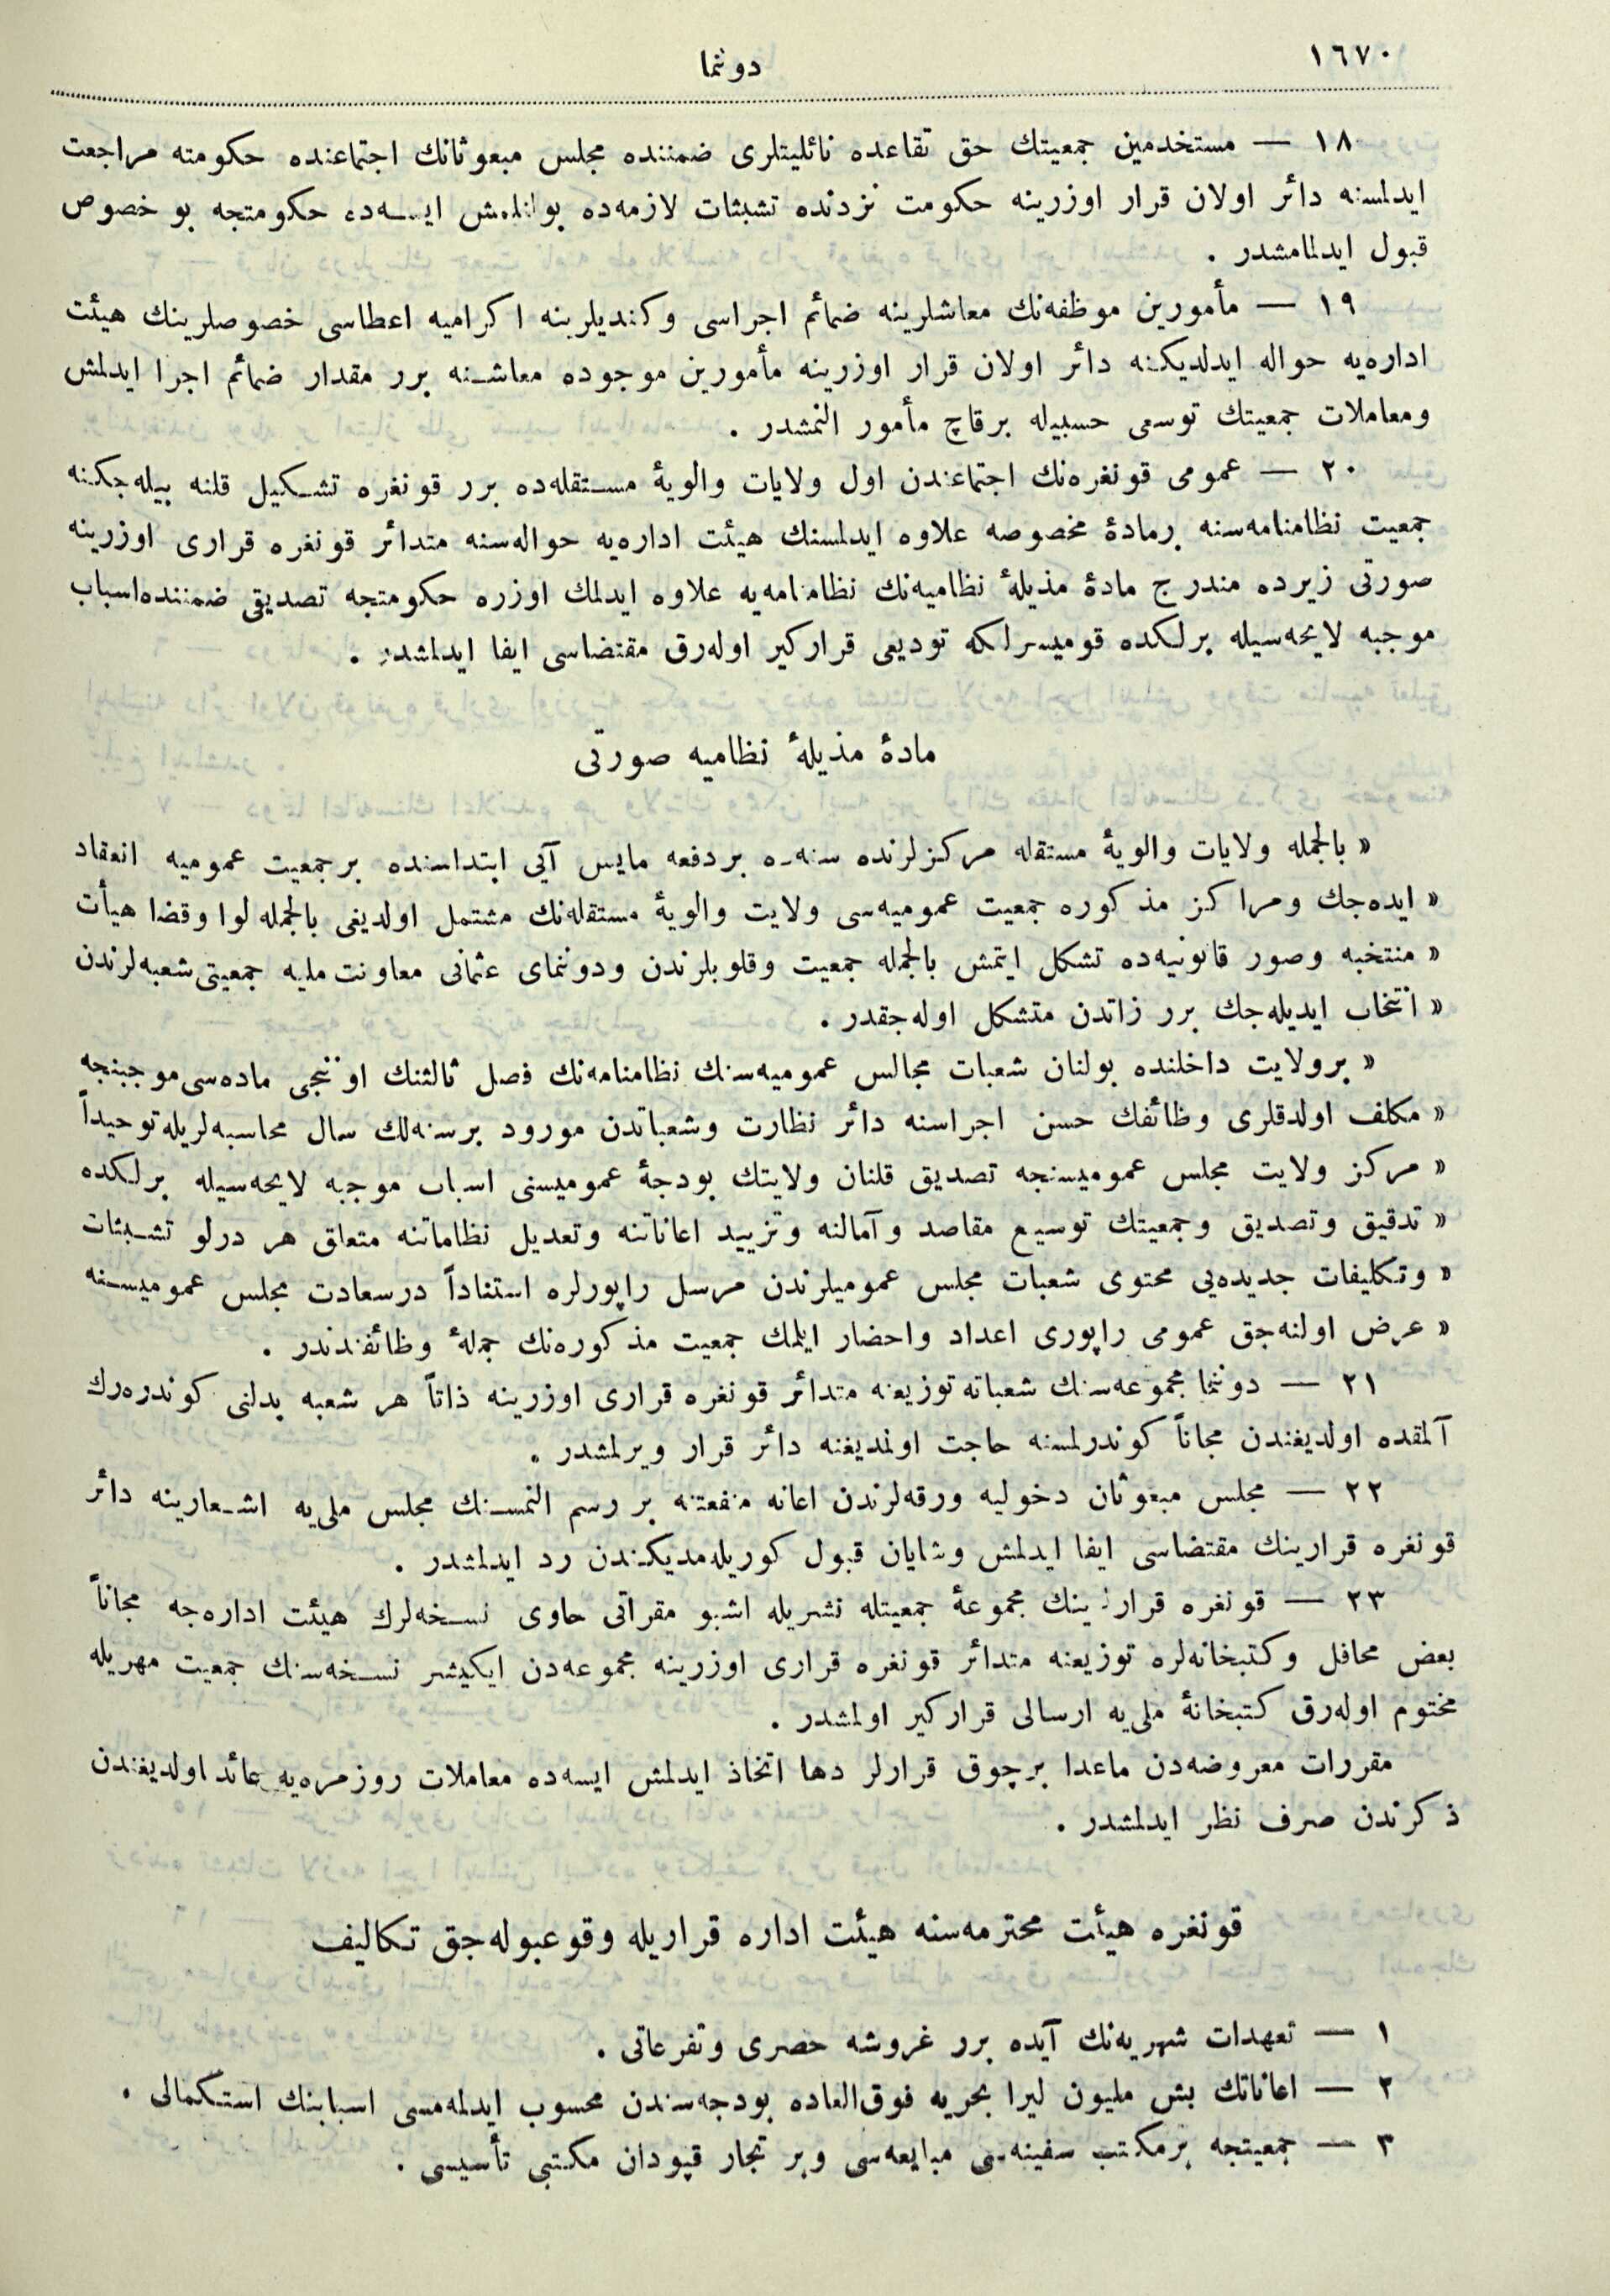 ١٦٧٠
دوننما
١٨ — مستخدمين جمعيتك حق تقاعده نائليتلرى ضمننده مجلس مبعوثانك اجتماعنده حكومته مراجعت
ايدلمسنه دائر اولان قرار اوزرينه حكومت نزدنده تشبثات لازمه‌ده بولنلمش ايسه‌ده حكومتجه بو خصوص
قبول ايدلمامشدر .
١٩ — مأمورين موظفه‌نك معاشلرينه ضمائم اجراسى وكنديلرينه اكراميه اعطاسى خصوصلرينك هيئت
اداره‌يه حواله ايدلديكنه دائر اولان قرار اوزرينه مأمورين موجوده معاشنه برر مقدار ضمائم اجرا ايدلمش
ومعاملات جمعيتك توسعى حسبيله برقاچ مأمور النمشدر .
٢٠ — عمومى قونغره‌نك اجتماعندن اول ولايات والويۀ مستقله‌ده برر قونغره تشكيل قلنه بيله‌جكنه
جمعيت نظامنامه‌سنه برمادۀ مخصوصه علاوه ايدلمسنك هيئت اداره‌يه حواله‌سنه متدائر قونغره قرارى اوزرينه
صورتى زيرده مندرج مادۀ مذيلۀ نظاميه‌نك نظامنامه‌يه علاوه ايدلمك اوزره حكومتجه تصديقى ضمننده‌اسباب
موجبه لايحه‌سيله برلكده قوميسرلكه توديعى قراركير اوله‌رق مقتضاسى ايفا ايدلمشدر .
مادۀ مذيلۀ نظاميه صورتى
« بالجمله ولايات والويۀ مستقله مركزلرنده سنه‌ده بردفعه مايس آيى ابتداسنده برجمعيت عموميه انعقاد
« ايده‌جك ومراكز مذكوره جمعيت عموميه‌سى ولايت والويۀ مستقله‌نك مشتمل اولديغى بالجمله لوا وقضا هيأت
« منتخبه وصور قانونيه‌ده تشكل ايتمش بالجمله جمعيت وقلوبلرندن ودوننماى عثمانى معاونت مليه جمعيتى شعبه‌لرندن
« انتخاب ايديله‌جك برر ذاتدن متشكل اوله‌جقدر .
« برولايت داخلنده بولنان شعبات مجالس عموميه‌سنك نظامنامه‌نك فصل ثالثنك اوننجى ماده‌سى موجبنجه
« مكلف اولدقلرى وظائفك حسن اجراسنه دائر نظارت وشعباتدن مورود برسنه‌لك سال محاسبه‌لريله توحيداً
« مركز ولايت مجلس عموميسنجه تصديق قلنان ولايتك بودجۀ عموميسنى اسباب موجبه لايحه‌سيله برلكده
« تدقيق وتصديق وجمعيتك توسيع مقاصد وآمالنه وتزييد اعاناتنه وتعديل نظاماتنه متعلق هر درلو تشبثات
« وتكليفات جديده‌يى محتوى شعبات مجلس عموميلرندن مرسل راپورلره استناداً درسعادت مجلس عموميسنه
« عرض اولنه‌جق عمومى راپورى اعداد واحضار ايلمك جمعيت مذكوره‌نك جملۀ وظائفندندر .
٢١ — دوننما مجموعه‌سنك شعباته توزيعنه متدائر قونغره قرارى اوزرينه ذاتاً هر شعبه بدلنى كوندره‌رك
آلمقده اولديغندن مجاناً كوندرلمسنه حاجت اولمديغنه دائر قرار ويرلمشدر .
٢٢ — مجلس مبعوثان دخوليه ورقه‌لرندن اعانه منفعتنه بر رسم النمسنك مجلس ملى‌يه اشعارينه دائر
قونغره قرارينك مقتضاسى ايفا ايدلمش وشايان قبول كوريله‌مديكندن رد ايدلمشدر .
٢٣ — قونغره قرارينك مجموعۀ جمعيتله نشريله اشبو مقراتى حاوى نسخه‌لرك هيئت اداره‌جه مجاناً
بعض محافل وكتبخانه‌لره توزيعنه متدائر قونغره قرارى اوزرينه مجموعه‌دن ايكيشر نسخه‌سنك جمعيت مهريله
مختوم اوله‌رق كتبخانۀ ملى‌يه ارسالى قراركير اولمشدر .
مقررات معروضه‌دن ماعدا برچوق قرارلر دها اتخاذ ايدلمش ايسه‌ده معاملات روزمره‌يه عائد اولديغندن
ذكرندن صرف نظر ايدلمشدر .
قونغره هيئت محترمه‌سنه هيئت اداره قراريله وقوعبوله‌جق تكاليف
١ — تعهدات شهريه‌نك آيده برر غروشه حصرى وتفرعاتى .
٢ — اعاناتك بش مليون ليرا بحريه فوق‌العاده بودجه‌سندن محسوب ايدلمه‌مسى اسبابنك استكمالى .
٣ — جمعيتجه برمكتب سفينه‌سى مبايعه‌سى وبر تجار قپودان مكتبى تأسيسى .